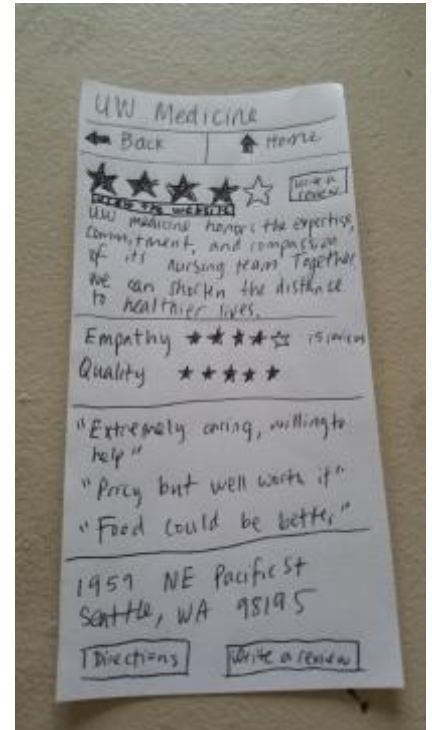 UW Medicine
Back Home
write a review
view the website
UW medicine honors the expertise,
commitment, and compassion
of its nursing team. Together
we can shorten the distance
to healthier lives.
Empathy 15 reviews
Quality
"Extremely caring, willing to
help"
"Pricy but well worth it"
"Food could be better"
1959 NE Pacific St
Seattle, WA 98195
Directions Write a review